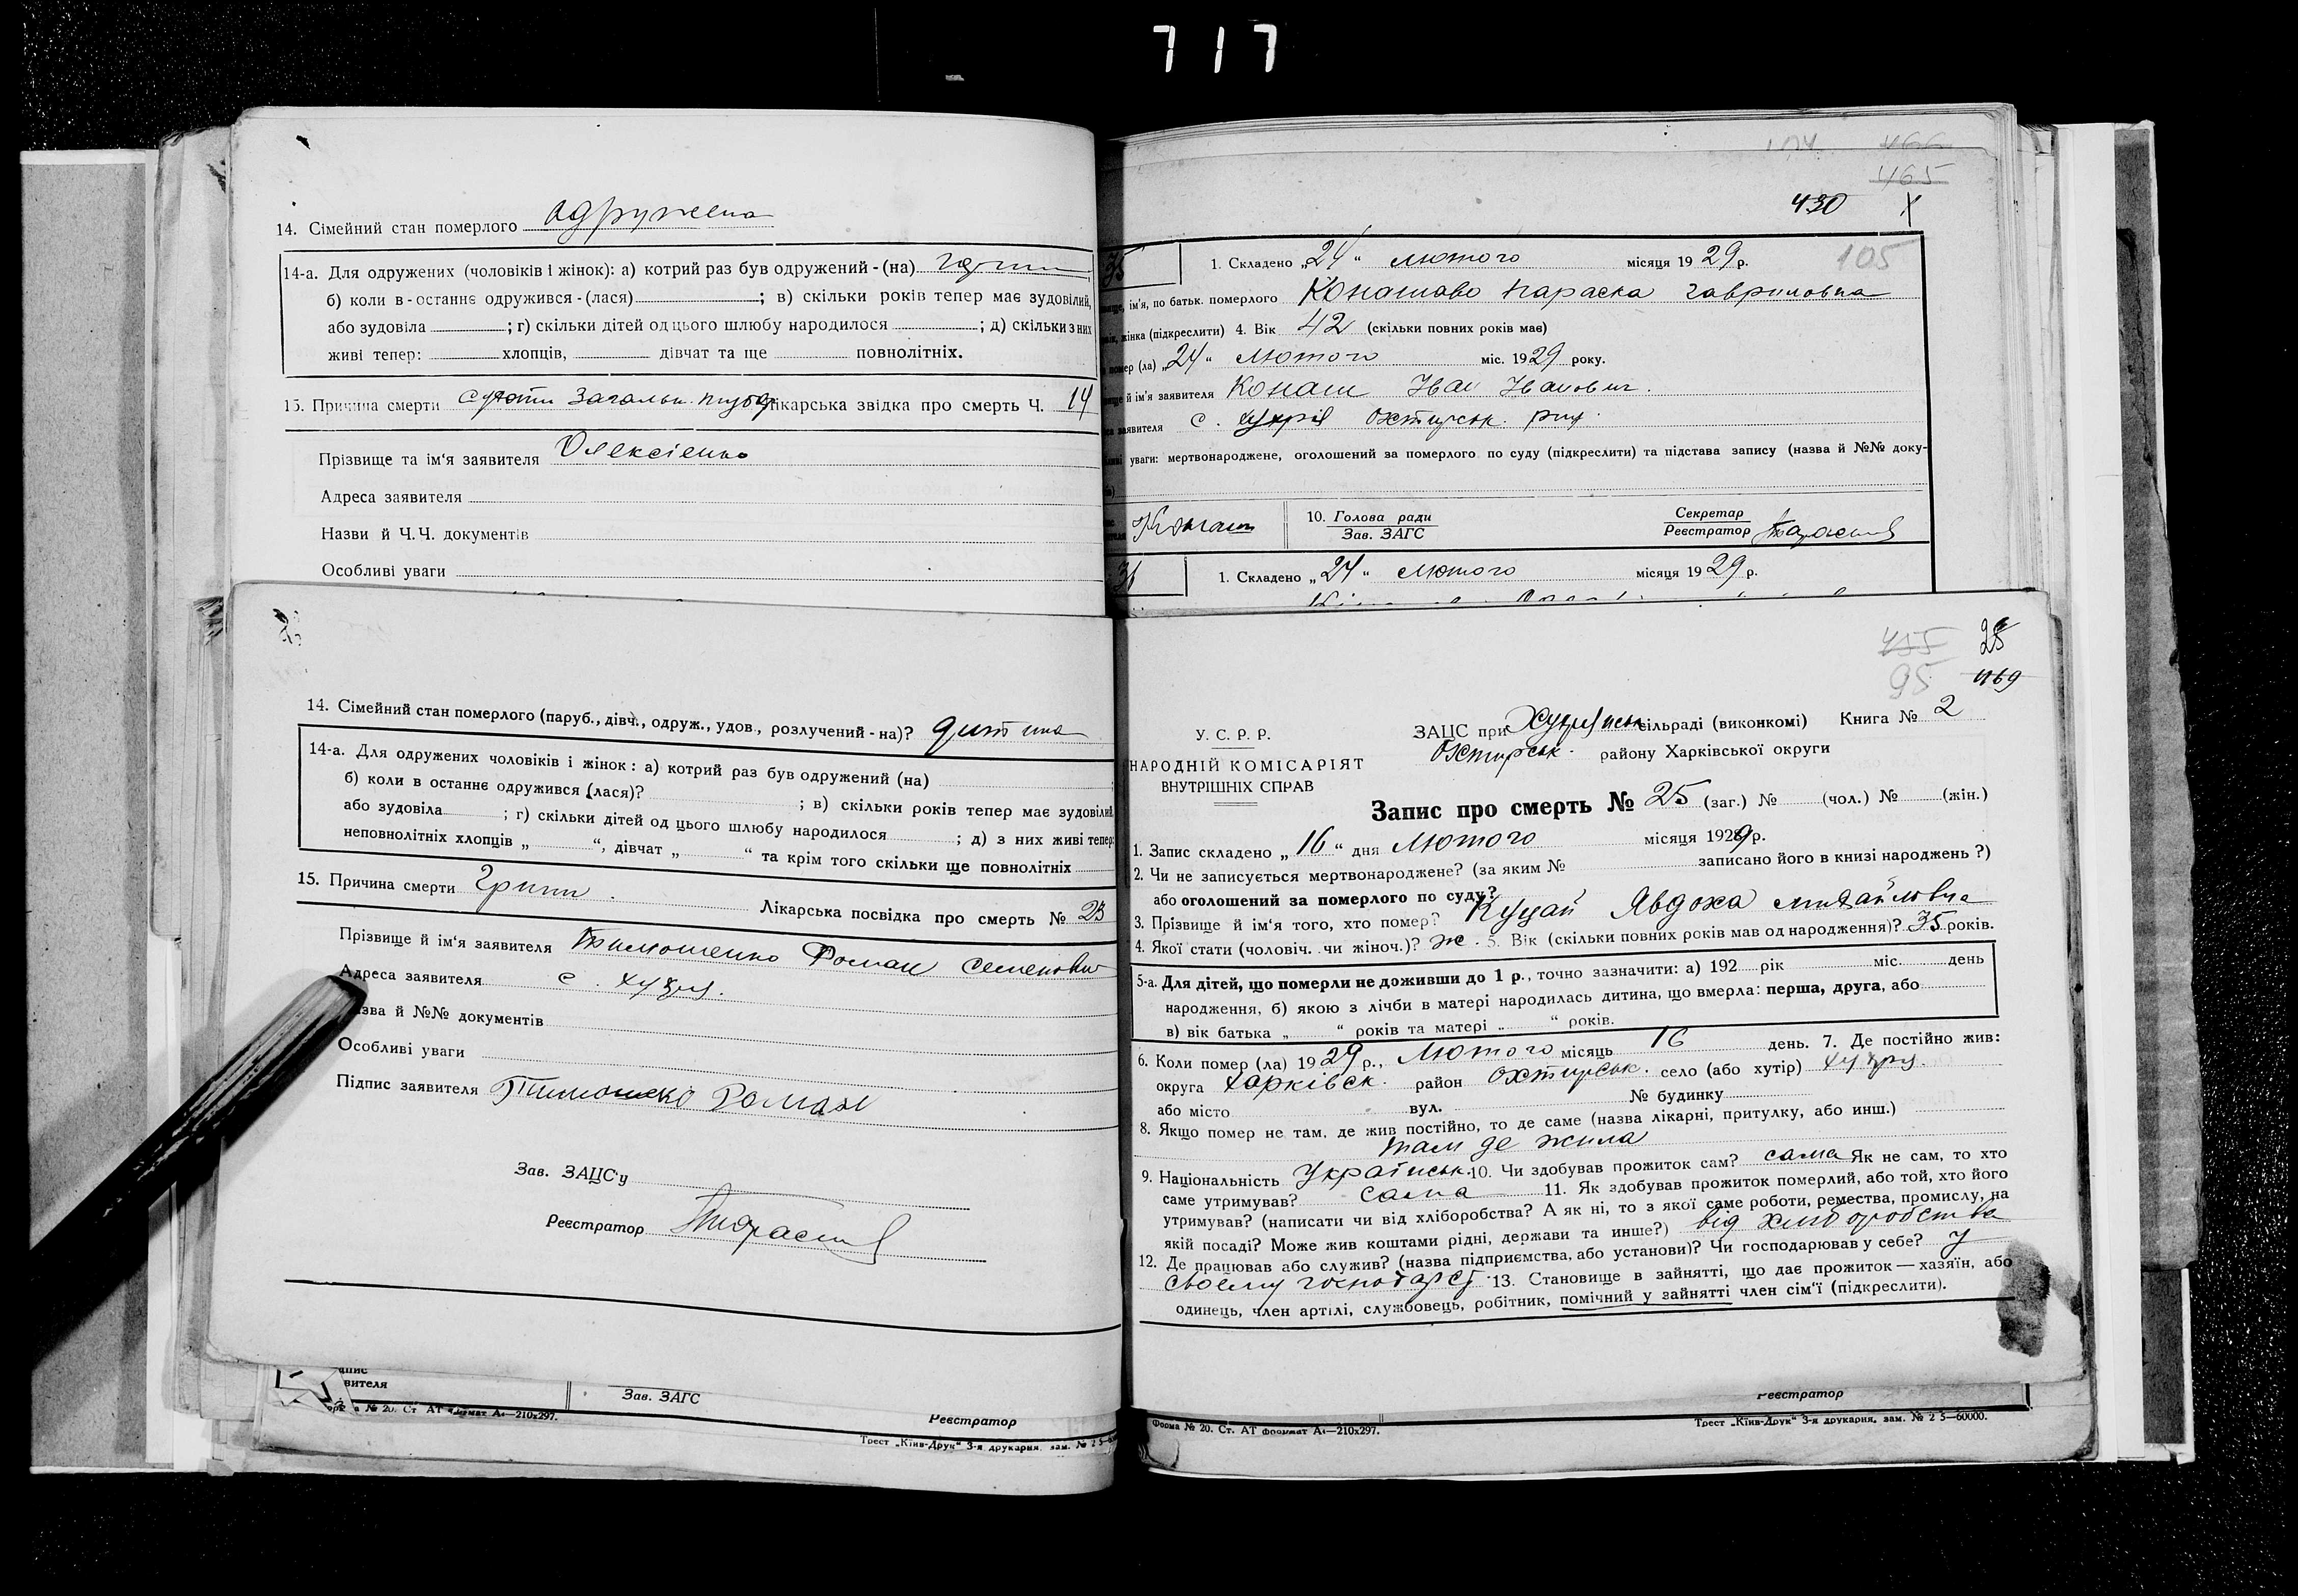 717
14. Сімейний стан померлого одружена
14-а. Для одружених (чоловіків і жінок): а) котрий раз був одружений - (на)
б) коли в - останнє одружився - (лася) ; в) скільки років тепер має зудовілий,
або зудовіла ; г) скільки дітей од цього шлюбу народилося ; д) скільки з них
живі тепер: хлопців, дівчат та ще повнолітніх.
15. Причина смерти лікарська звідка про смерть Ч. 14
Прізвище та ім'я заявителя Олексієнко
Адреса заявителя
Назви й Ч.Ч. документів
Особливі уваги
14. Сімейний стан померлого (паруб., дівч., одруж., удов., розлучений - на)? дитина
14-а. Для одружених чоловіків і жінок: а) котрий раз був одружений (на)
б) коли в останнє одружився (лася)? ; в) скільки років тепер має зудовілий,
або зудовіла ; г) скільки дітей од цього шлюбу народилося ; д) з них живі тепер:
неповнолітніх хлопців „ “, дівчат „ “ та крім того скільки ще повнолітніх
15. Причина смерти Грипп. Лікарська посвідка про смерть № 23
Прізвище й ім'я заявителя Тимошенко Роман Семенович
Адреса заявителя с. Хухря.
азва й №№ документів
Особливі уваги
Підпис заявителя Тимошенко Роман
Зав. ЗАЦС'у
Реєстратор
апис
вителя
Зав. ЗАГС
Реєстратор
№ 20. Ст. АТ формат А₄—210х297.
Трест „Київ-Друк“ 3-я друкарня, зам. № 2 5—
466
465
430 X
105
35
1. Складено „24“ лютого місяця 1929 р.
ище, ім'я, по батьк. померлого Конашова Параска Гавриловна
жінка (підкреслити) 4. Вік 42 (скільки повних років має)
помер (ла) „24“ Лютого міс. 1929 року.
ище й ім'я заявителя Конаш Іван Іванович.
заявителя с. Хухря Охтирськ. рну.
уваги: мертвонароджене, оголошений за померлого по суду (підкреслити) та підстава запису (назва й №№ доку-
Конаш
10. Голова ради
Зав. ЗАГС
Секретар
Реєстратор
36
1. Складено „24“ лютого місяця 1929 р.
455 28
95 469
У. С. Р. Р.
НАРОДНІЙ КОМІСАРІЯТ
ВНУТРІШНІХ СПРАВ
ЗАЦС при Хухрянськ сільраді (виконкомі) Книга № 2
Охтирськ. району Харківської округи
Запис про смерть № 25 (заг.) № (чол.) № (жін.)
1. Запис складено „16“ дня Лютого місяця 1929 р.
2. Чи не записується мертвонароджене? (за яким № записано його в книзі народжень?)
або оголошений за померлого по суду?
3. Прізвище й ім'я того, хто помер? Куцай Явдоха Михайловна
4. Якої стати (чоловіч. чи жіноч.)? ж. 5. Вік (скільки повних років мав од народження)? 35 років.
5-а. Для дітей, що померли не доживши до 1 р., точно зазначити: а) 192 рік міс. день
народження, б) якою з лічби в матері народилась дитина, що вмерла: перша, друга, або
в) вік батька „ “ років та матері „ “ років.
6. Коли помер (ла) 1929 р., Лютого місяць 16 день. 7. Де постійно жив:
округа Харківськ. район Охтирськ. село (або хутір) Хухря.
або місто вул. № будинку
8. Якщо помер не там, де жив постійно, то де саме (назва лікарні, притулку, або инш.)
там де жила
9. Національність Українськ. 10. Чи здобував прожиток сам? сама Як не сам, то хто
саме утримував? сама 11. Як здобував прожиток померлий, або той, хто його
утримував? (написати чи від хліборобства? А як ні, то з якої саме роботи, ремества, промислу, на
якій посаді? Може жив коштами рідні, держави та инше?) від хліборобства
12. Де працював або служив? (назва підприємства, або установи)? Чи господарював у себе? У
своєму господарст. 13. Становище в зайнятті, що дає прожиток — хазяїн, або
одинець, член артілі, службовець, робітник, помічний у зайнятті член сім'ї (підкреслити).
Реєстратор
Форма № 20. Ст. АТ формат А₄—210х297.
Трест „Київ-Друк“ 3-я друкарня, зам. № 2 5—60000.